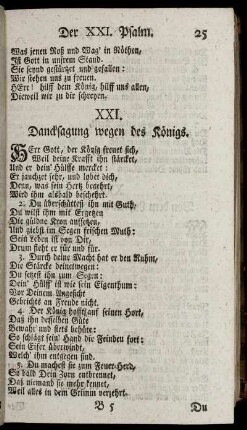 Der XXI. Psalm. 25
Was jenen Roß und Wag' in Nöthen,
Ist Gott in unsrem Stand.
Sie seynd gestürtzet und gefallen:
Wir stehen uns zu freuen.
HErr! hilff dem König, hülff uns allen,
Dieweil wir zu dir schreyen.
XXI.
Dancksagung wegen des Königs.
HErr Gott, der König freuet sich,
Weil deine Krafft ihn stärcket,
Und er dein' Hülffe mercket:
Er jauchzet sehr, und lobet dich,
Denn, was sein Hertz begehrt,
Wird ihm alsbald beschehrt.
2. Du überschüttest ihn mit Guth,
Du wilst ihm mit Ergetzen
Die güldne Kron aufsetzen,
Und giebst im Segen frischen Muth:
Sein Leben ist von Dir,
Drum steht er für und für.
3. Durch deine Macht hat er den Ruhm,
Die Stärcke deinetwegen:
Du setzest ihn zum Segen:
Dein' Hülff' ist wie sein Eigenthum:
Vor Deinem Angesicht
Gebrichts an Freude nicht.
4. Der König hoffet auf seinen Hort,
Daß ihn desselben Güte
Bewahr' und stets behüte:
So schlägt sein' Hand die Feinden fort:
Sein Eifer überwindt,
Welch' ihm entgegen sind.
5. Du machest sie zum Feuer-Herd,
So bald Dein Zorn entbrennet,
Daß niemand sie mehr kennet,
Weil alles in dem Grimm verzehrt.
B 5 Du